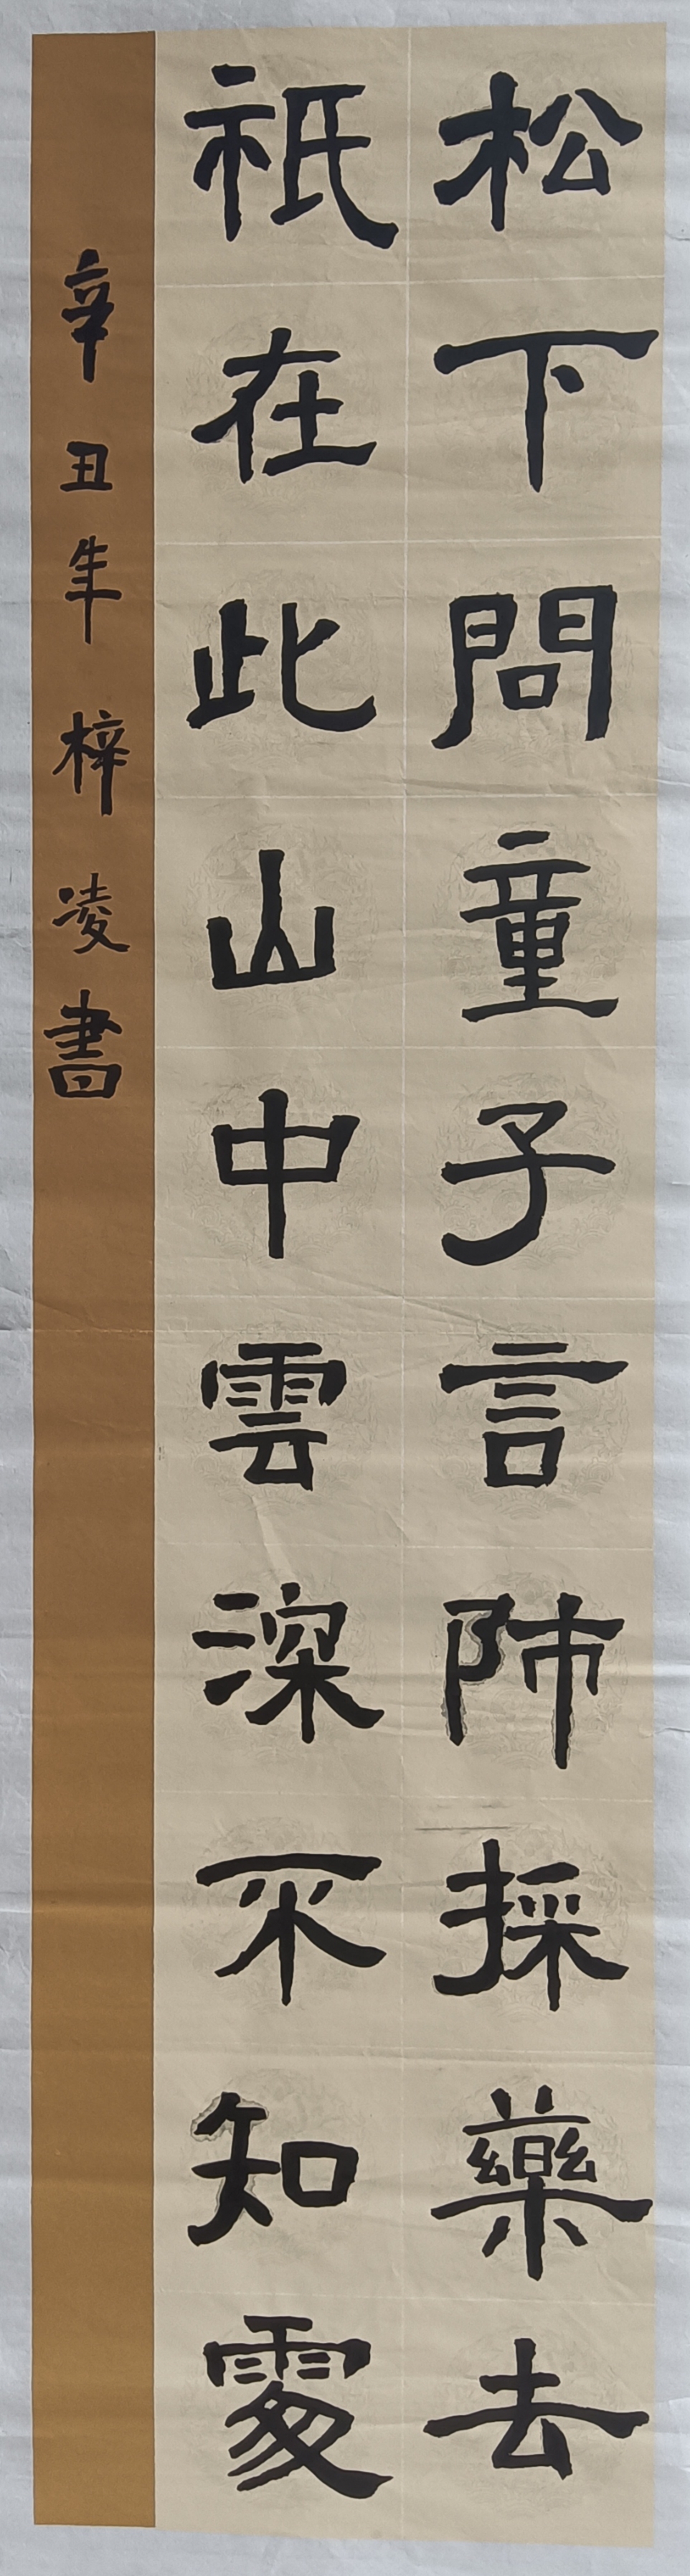 松下問童子言師採藥去
祇在此山中雲深不知處
辛丑年梓凌書